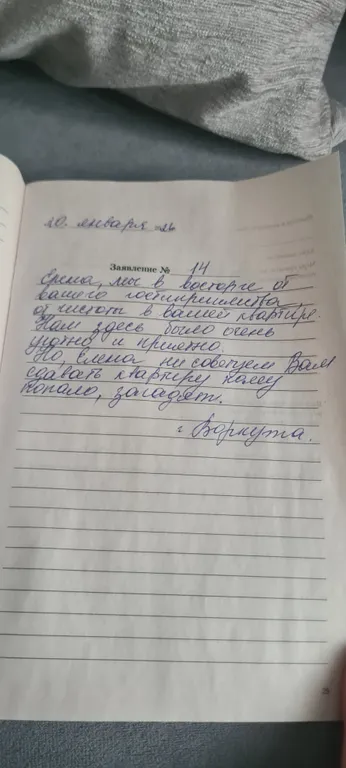 20. января -26
Заявление № 14
Елена, мы в восторге от
вашего гостеприимства,
от чистоты в вашей квартире.
Нам здесь было очень
уютно и приятно.
Но Елена не советуем Вам
сдавать квартиру кому
попало, загадят.
г. Воркута.